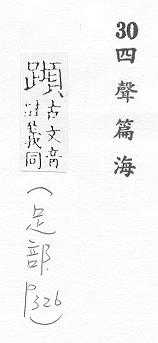 30四聲篇海
蹞古文音
註義同
(足部
P326)